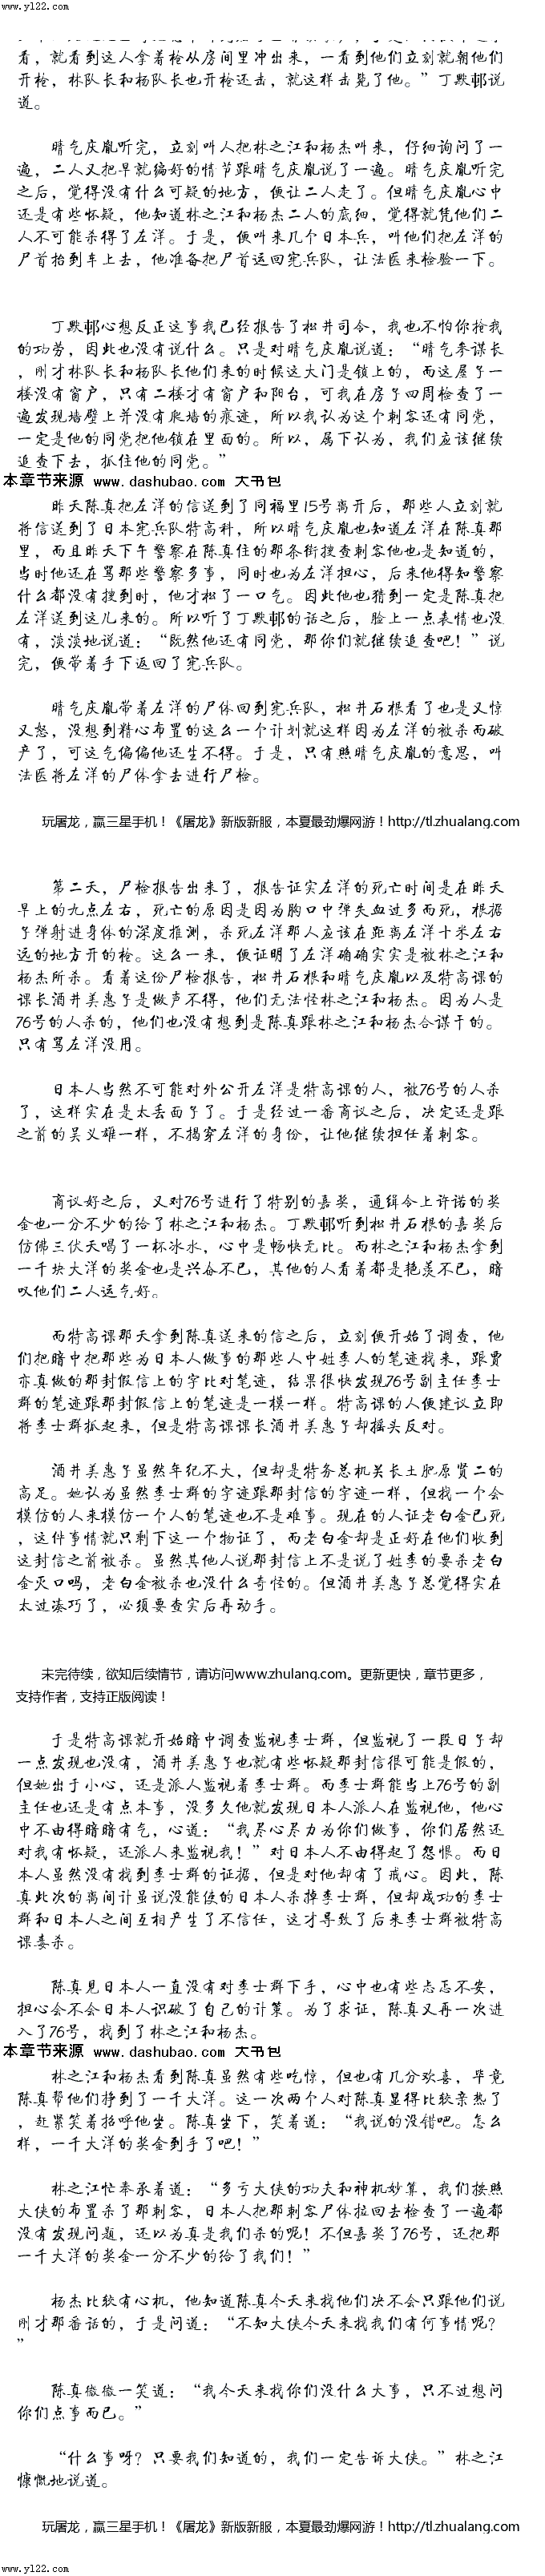 www.yl22.com
看，就看到这人拿着枪从房间里冲出来，一看到他们立刻就朝他们
开枪，林队长和杨队长也开枪还击，就这样击毙了他。”丁默邨说
道。
晴气庆胤听完，立刻叫人把林之江和杨杰叫来，仔细询问了一
遍，二人又把早就编好的情节跟晴气庆胤说了一遍。晴气庆胤听完
之后，觉得没有什么可疑的地方，便让二人走了。但晴气庆胤心中
还是有些怀疑，他知道林之江和杨杰二人的底细，觉得就凭他们二
人不可能杀得了左洋。于是，便叫来几个日本兵，叫他们把左洋的
尸首抬到车上去，他准备把尸首运回宪兵队，让法医来检验一下。
丁默邨心想反正这事我已经报告了松井司令，我也不怕你抢我
的功劳，因此也没有说什么。只是对晴气庆胤说道：“晴气参谋长
，刚才林队长和杨队长他们来的时候这大门是锁上的，而这屋子一
楼没有窗户，只有二楼才有窗户和阳台，可我在房子四周检查了一
遍发现墙壁上并没有爬墙的痕迹，所以我认为这个刺客还有同党，
一定是他的同党把他锁在里面的。所以，属下认为，我们应该继续
追查下去，抓住他的同党。”
本章节来源 www.dashubao.com 大书包
昨天陈真把左洋的信送到了同福里15号离开后，那些人立刻就
将信送到了日本宪兵队特高科，所以晴气庆胤也知道左洋在陈真那
里，而且昨天下午警察在陈真住的那条街搜查刺客他也是知道的，
当时他还在骂那些警察多事，同时也为左洋担心，后来他得知警察
什么都没有搜到时，他才松了一口气。因此他也猜到一定是陈真把
左洋送到这儿来的。所以听了丁默邨的话之后，脸上一点表情也没
有，淡淡地说道：“既然他还有同党，那你们就继续追查吧！”说
完，便带着手下返回了宪兵队。
晴气庆胤带着左洋的尸体回到宪兵队，松井石根看了也是又惊
又怒，没想到精心布置的这么一个计划就这样因为左洋的被杀而破
产了，可这气偏偏他还生不得。于是，只有照晴气庆胤的意思，叫
法医将左洋的尸体拿去进行尸检。
玩屠龙，赢三星手机！《屠龙》新版新服，本夏最劲爆网游！http://tl.zhualang.com
第二天，尸检报告出来了，报告证实左洋的死亡时间是在昨天
早上的九点左右，死亡的原因是因为胸口中弹失血过多而死，根据
子弹射进身体的深度推测，杀死左洋那人应该在距离左洋十米左右
远的地方开的枪。这么一来，便证明了左洋确确实实是被林之江和
杨杰所杀。看着这份尸检报告，松井石根和晴气庆胤以及特高课的
课长酒井美惠子是做声不得，他们无法怪林之江和杨杰。因为人是
76号的人杀的，他们也没有想到是陈真跟林之江和杨杰合谋干的。
只有骂左洋没用。
日本人当然不可能对外公开左洋是特高课的人，被76号的人杀
了，这样实在是太丢面子了。于是经过一番商议之后，决定还是跟
之前的吴义雄一样，不揭穿左洋的身份，让他继续担任着刺客。
商议好之后，又对76号进行了特别的嘉奖，通缉令上许诺的奖
金也一分不少的给了林之江和杨杰。丁默邨听到松井石根的嘉奖后
仿佛三伏天喝了一杯冰水，心中是畅快无比。而林之江和杨杰拿到
一千块大洋的奖金也是兴奋不已，其他的人看着都是艳羡不已，暗
叹他们二人运气好。
而特高课那天拿到陈真送来的信之后，立刻便开始了调查，他
们把暗中把那些为日本人做事的那些人中姓李人的笔迹找来，跟贾
亦真做的那封假信上的字比对笔迹，结果很快发现76号副主任李士
群的笔迹跟那封假信上的笔迹是一模一样。特高课的人便建议立即
将李士群抓起来，但是特高课课长酒井美惠子却摇头反对。
酒井美惠子虽然年纪不大，但却是特务总机关长土肥原贤二的
高足。她认为虽然李士群的字迹跟那封信的字迹一样，但找一个会
模仿的人来模仿一个人的笔迹也不是难事。现在的人证老白金已死
，这件事情就只剩下这一个物证了，而老白金却是正好在他们收到
这封信之前被杀。虽然其他人说那封信上不是说了姓李的要杀老白
金灭口吗，老白金被杀也没什么奇怪的。但酒井美惠子总觉得实在
太过凑巧了，必须要查实后再动手。
未完待续，欲知后续情节，请访问www.zhulang.com。更新更快，章节更多，
支持作者，支持正版阅读！
于是特高课就开始暗中调查监视李士群，但监视了一段日子却
一点发现也没有，酒井美惠子也就有些怀疑那封信很可能是假的，
但她出于小心，还是派人监视着李士群。而李士群能当上76号的副
主任也还是有点本事，没多久他就发现日本人派人在监视他，他心
中不由得暗暗有气，心道：“我尽心尽力为你们做事，你们居然还
对我有怀疑，还派人来监视我！”对日本人不由得起了怨恨。而日
本人虽然没有找到李士群的证据，但是对他却有了戒心。因此，陈
真此次的离间计虽说没能使的日本人杀掉李士群，但却成功的李士
群和日本人之间互相产生了不信任，这才导致了后来李士群被特高
课毒杀。
陈真见日本人一直没有对李士群下手，心中也有些忐忑不安，
担心会不会日本人识破了自己的计策。为了求证，陈真又再一次进
入了76号，找到了林之江和杨杰。
本章节来源 www.dashubao.com 大书包
林之江和杨杰看到陈真虽然有些吃惊，但也有几分欢喜，毕竟
陈真帮他们挣到了一千大洋。这一次两个人对陈真显得比较亲热了
，赶紧笑着招呼他坐。陈真坐下，笑着道：“我说的没错吧。怎么
样，一千大洋的奖金到手了吧！”
林之江忙奉承着道：“多亏大侠的功夫和神机妙算，我们按照
大侠的布置杀了那刺客，日本人把那刺客尸体拉回去检查了一遍都
没有发现问题，还以为真是我们杀的呢！不但嘉奖了76号，还把那
一千大洋的奖金一分不少的给了我们！”
杨杰比较有心机，他知道陈真今天来找他们决不会只跟他们说
刚才那番话的，于是问道：“不知大侠今天来找我们有何事情呢？
”
陈真微微一笑道：“我今天来找你们没什么大事，只不过想问
你们点事而已。”
“什么事呀？只要我们知道的，我们一定告诉大侠。”林之江
慷慨地说道。
玩屠龙，赢三星手机！《屠龙》新版新服，本夏最劲爆网游！http://tl.zhualang.com
www.yl22.com